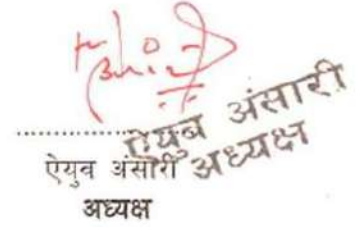 ऐयुब अंसारी
अध्यक्ष
ऐयुव अंसारी
अध्यक्ष